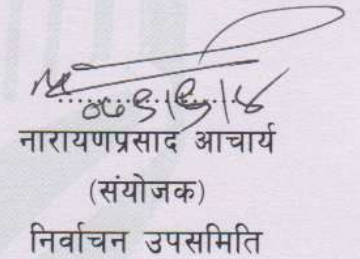 नारायणप्रसाद आचार्य
(संयोजक)
निर्वाचन उपसमिति